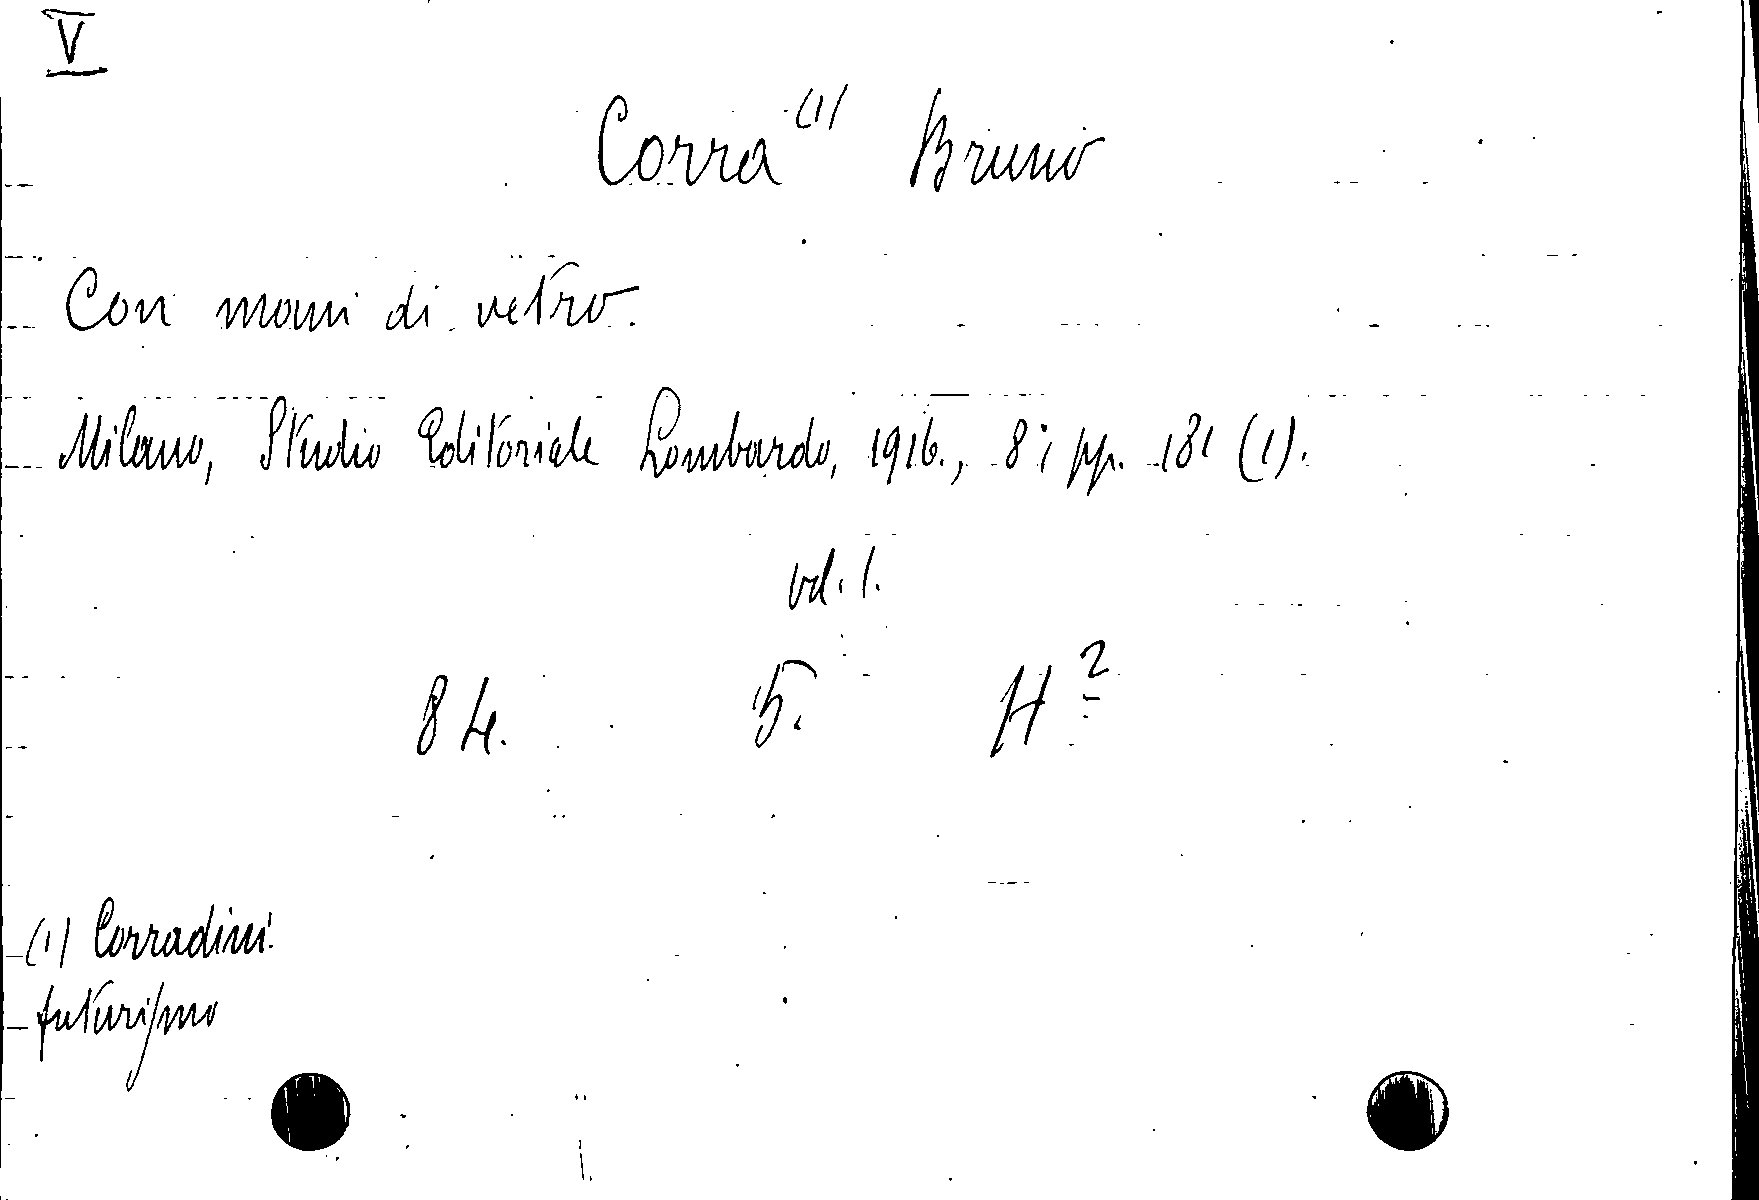 V
Corra (1) Bruno
Con mani di vetro.
Milano, Studio Editoriale Lombardo, 1916., 8°; pp. 181 (1).
vol. 1.
84. 5. H²
(1) Corradini.
futurismo